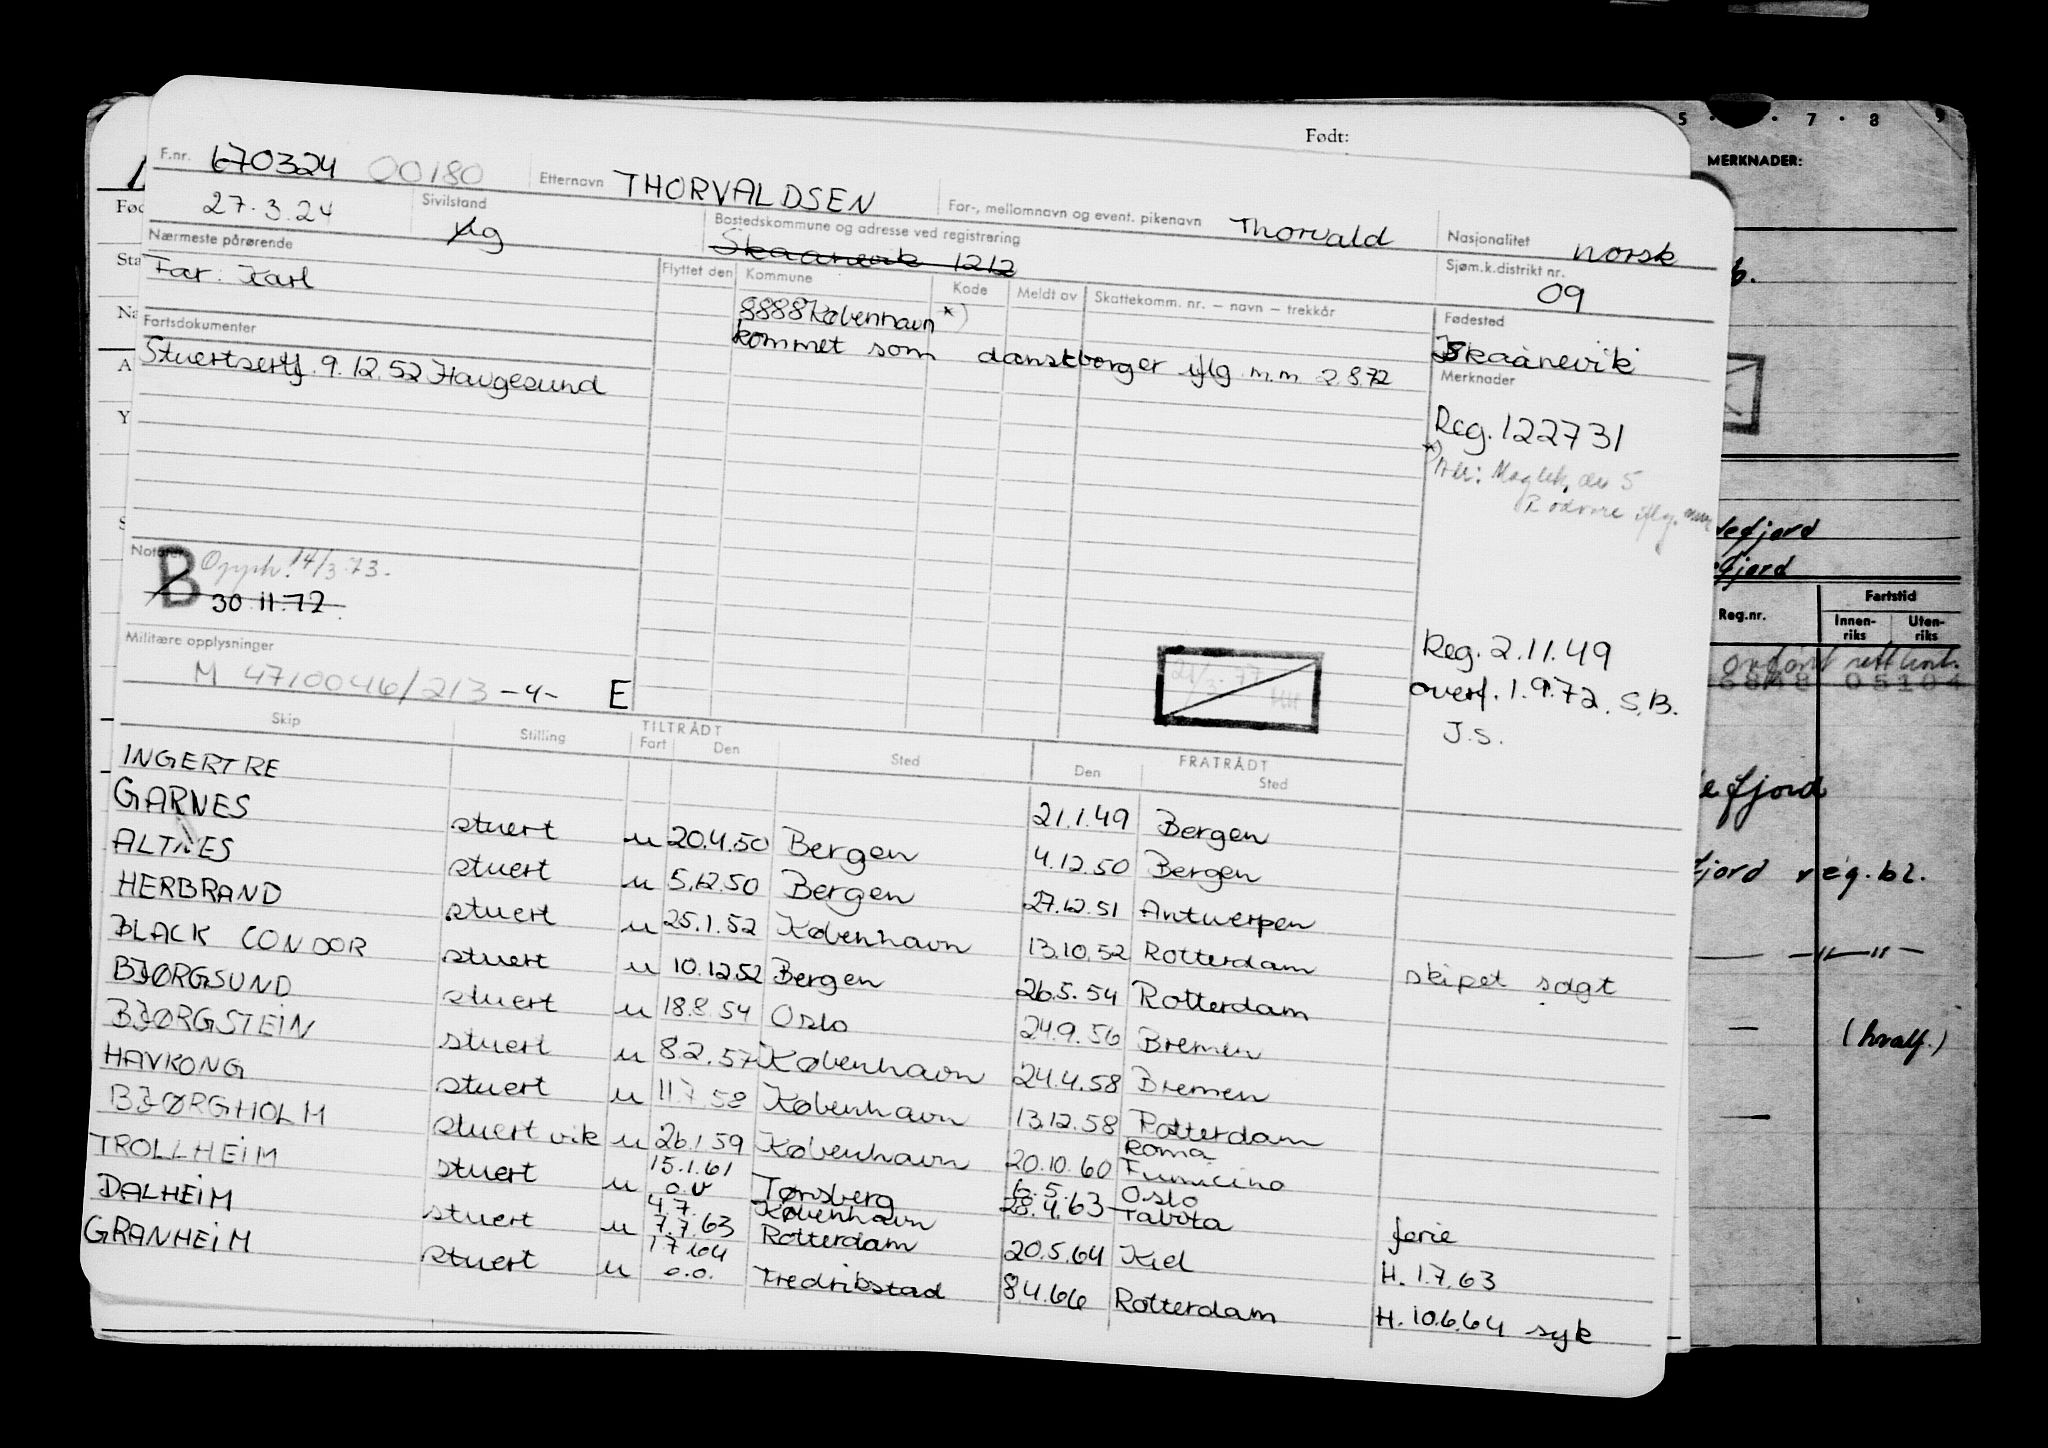 Født:
F.nr. 670324 00180 Etternavn THORVALDSEN For-, mellomnavn og event. pikenavn Thorvald Nasjonalitet norsk
27.3.24 Sivilstand ug Bostedskommune og adresse ved registrering Skaanevik 1212 Sjøm.k.distrikt nr. 09
Nærmeste pårørende Flyttet den Kommune Kode Meldt av Skattekomm. nr. – navn – trekkår Fødested
Far: Karl 8888 København *) Skaanevik
Fartsdokumenter kommet som danskborger iflg m.m 2.8.72 Merknader
Stuertsertf. 9.12.52 Haugesund
Reg. 122731
*) Adr: 5
Rødovre iflg. mm
Notater B Opph. 14/3.73.
30.11.72
Militære opplysninger
M 4710046/213 -4- E
21/3-77
Reg. 2.11.49
overf. 1.9.72. S.B.
J.S.
Skip Stilling TILTRÅDT Fart Den Sted FRATRÅDT Den Sted
INGERTRE 21.1.49 Bergen
GARNES stuert u 20.4.50 Bergen 4.12.50 Bergen
ALTNES stuert u 5.12.50 Bergen 27.12.51 Antwerpen
HERBRAND stuert u 25.1.52 København 13.10.52 Rotterdam skipet solgt
BLACK CONDOR stuert u 10.12.52 Bergen 26.5.54 Rotterdam
BJØRGSUND stuert u 18.8.54 Oslo 24.9.56 Bremen
BJØRGSTEIN stuert u 8.2.57 København 24.4.58 Bremen
HAVKONG stuert u 11.7.58 København 13.12.58 Rotterdam
BJØRGHOLM stuert vik u 26.1.59 København 20.10.60 Roma Fumicino
TROLLHEIM stuert u 15.1.61 o.v Tønsberg 6.5. Oslo
4.7. København 28.4.63 ferie
DALHEIM stuert u 7.7.63 Rotterdam 20.5.64 Kiel H. 1.7.63
GRANHEIM stuert u 1.7.64 o.o. Fredrikstad 8.4.66 Rotterdam H. 10.6.64 syk
5 · 7 · 8 9
MERKNADER:
Reg.nr. Fartstid
Innen-riks Uten-riks
05104
efjord
fjord reg.bl.
— " —
(hvalf.)